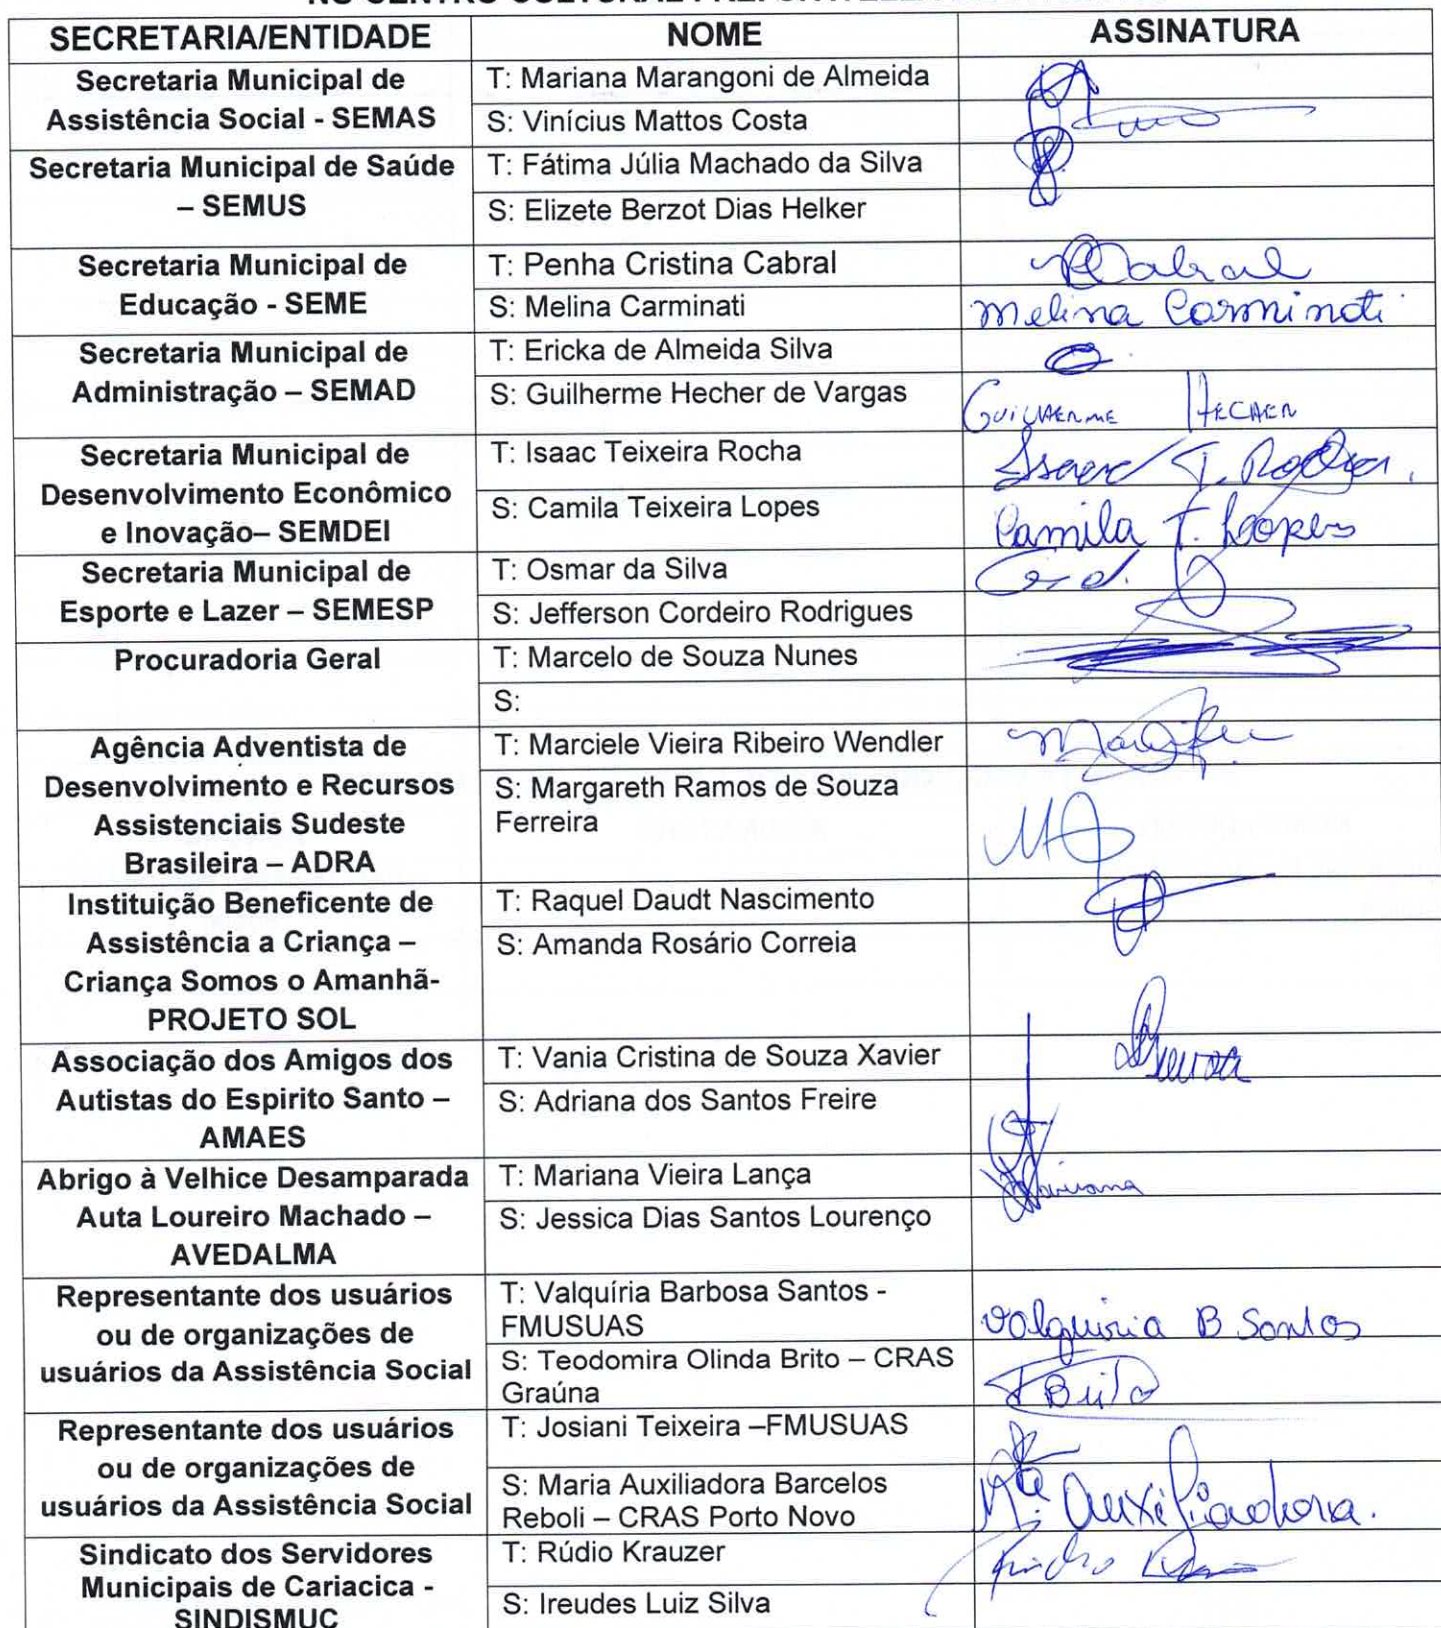 SECRETARIA/ENTIDADE NOME ASSINATURA
Secretaria Municipal de
Assistência Social - SEMAS
T: Mariana Marangoni de Almeida
S: Vinícius Mattos Costa
Secretaria Municipal de Saúde
– SEMUS
T: Fátima Júlia Machado da Silva
S: Elizete Berzot Dias Helker
Secretaria Municipal de
Educação - SEME
T: Penha Cristina Cabral
PCabral
S: Melina Carminati
Melina Carminati
Secretaria Municipal de
Administração – SEMAD
T: Ericka de Almeida Silva
S: Guilherme Hecher de Vargas
GUILHERME HECHER
Secretaria Municipal de
Desenvolvimento Econômico
e Inovação– SEMDEI
T: Isaac Teixeira Rocha
Isaac T. Rocha.
S: Camila Teixeira Lopes
Camila T. Lopes
Secretaria Municipal de
Esporte e Lazer – SEMESP
T: Osmar da Silva
S: Jefferson Cordeiro Rodrigues
Procuradoria Geral
T: Marcelo de Souza Nunes
S:
Agência Adventista de
Desenvolvimento e Recursos
Assistenciais Sudeste
Brasileira – ADRA
T: Marciele Vieira Ribeiro Wendler
S: Margareth Ramos de Souza
Ferreira
Instituição Beneficente de
Assistência a Criança –
Criança Somos o Amanhã-
PROJETO SOL
T: Raquel Daudt Nascimento
S: Amanda Rosário Correia
Associação dos Amigos dos
Autistas do Espirito Santo –
AMAES
T: Vania Cristina de Souza Xavier
S: Adriana dos Santos Freire
Abrigo à Velhice Desamparada
Auta Loureiro Machado –
AVEDALMA
T: Mariana Vieira Lança
Mariana
S: Jessica Dias Santos Lourenço
Representante dos usuários
ou de organizações de
usuários da Assistência Social
T: Valquíria Barbosa Santos -
FMUSUAS
Valquiria B Santos
S: Teodomira Olinda Brito – CRAS
Graúna
TBrito
Representante dos usuários
ou de organizações de
usuários da Assistência Social
T: Josiani Teixeira –FMUSUAS
S: Maria Auxiliadora Barcelos
Reboli – CRAS Porto Novo
Mª Auxiliadora.
Sindicato dos Servidores
Municipais de Cariacica -
SINDISMUC
T: Rúdio Krauzer
S: Ireudes Luiz Silva